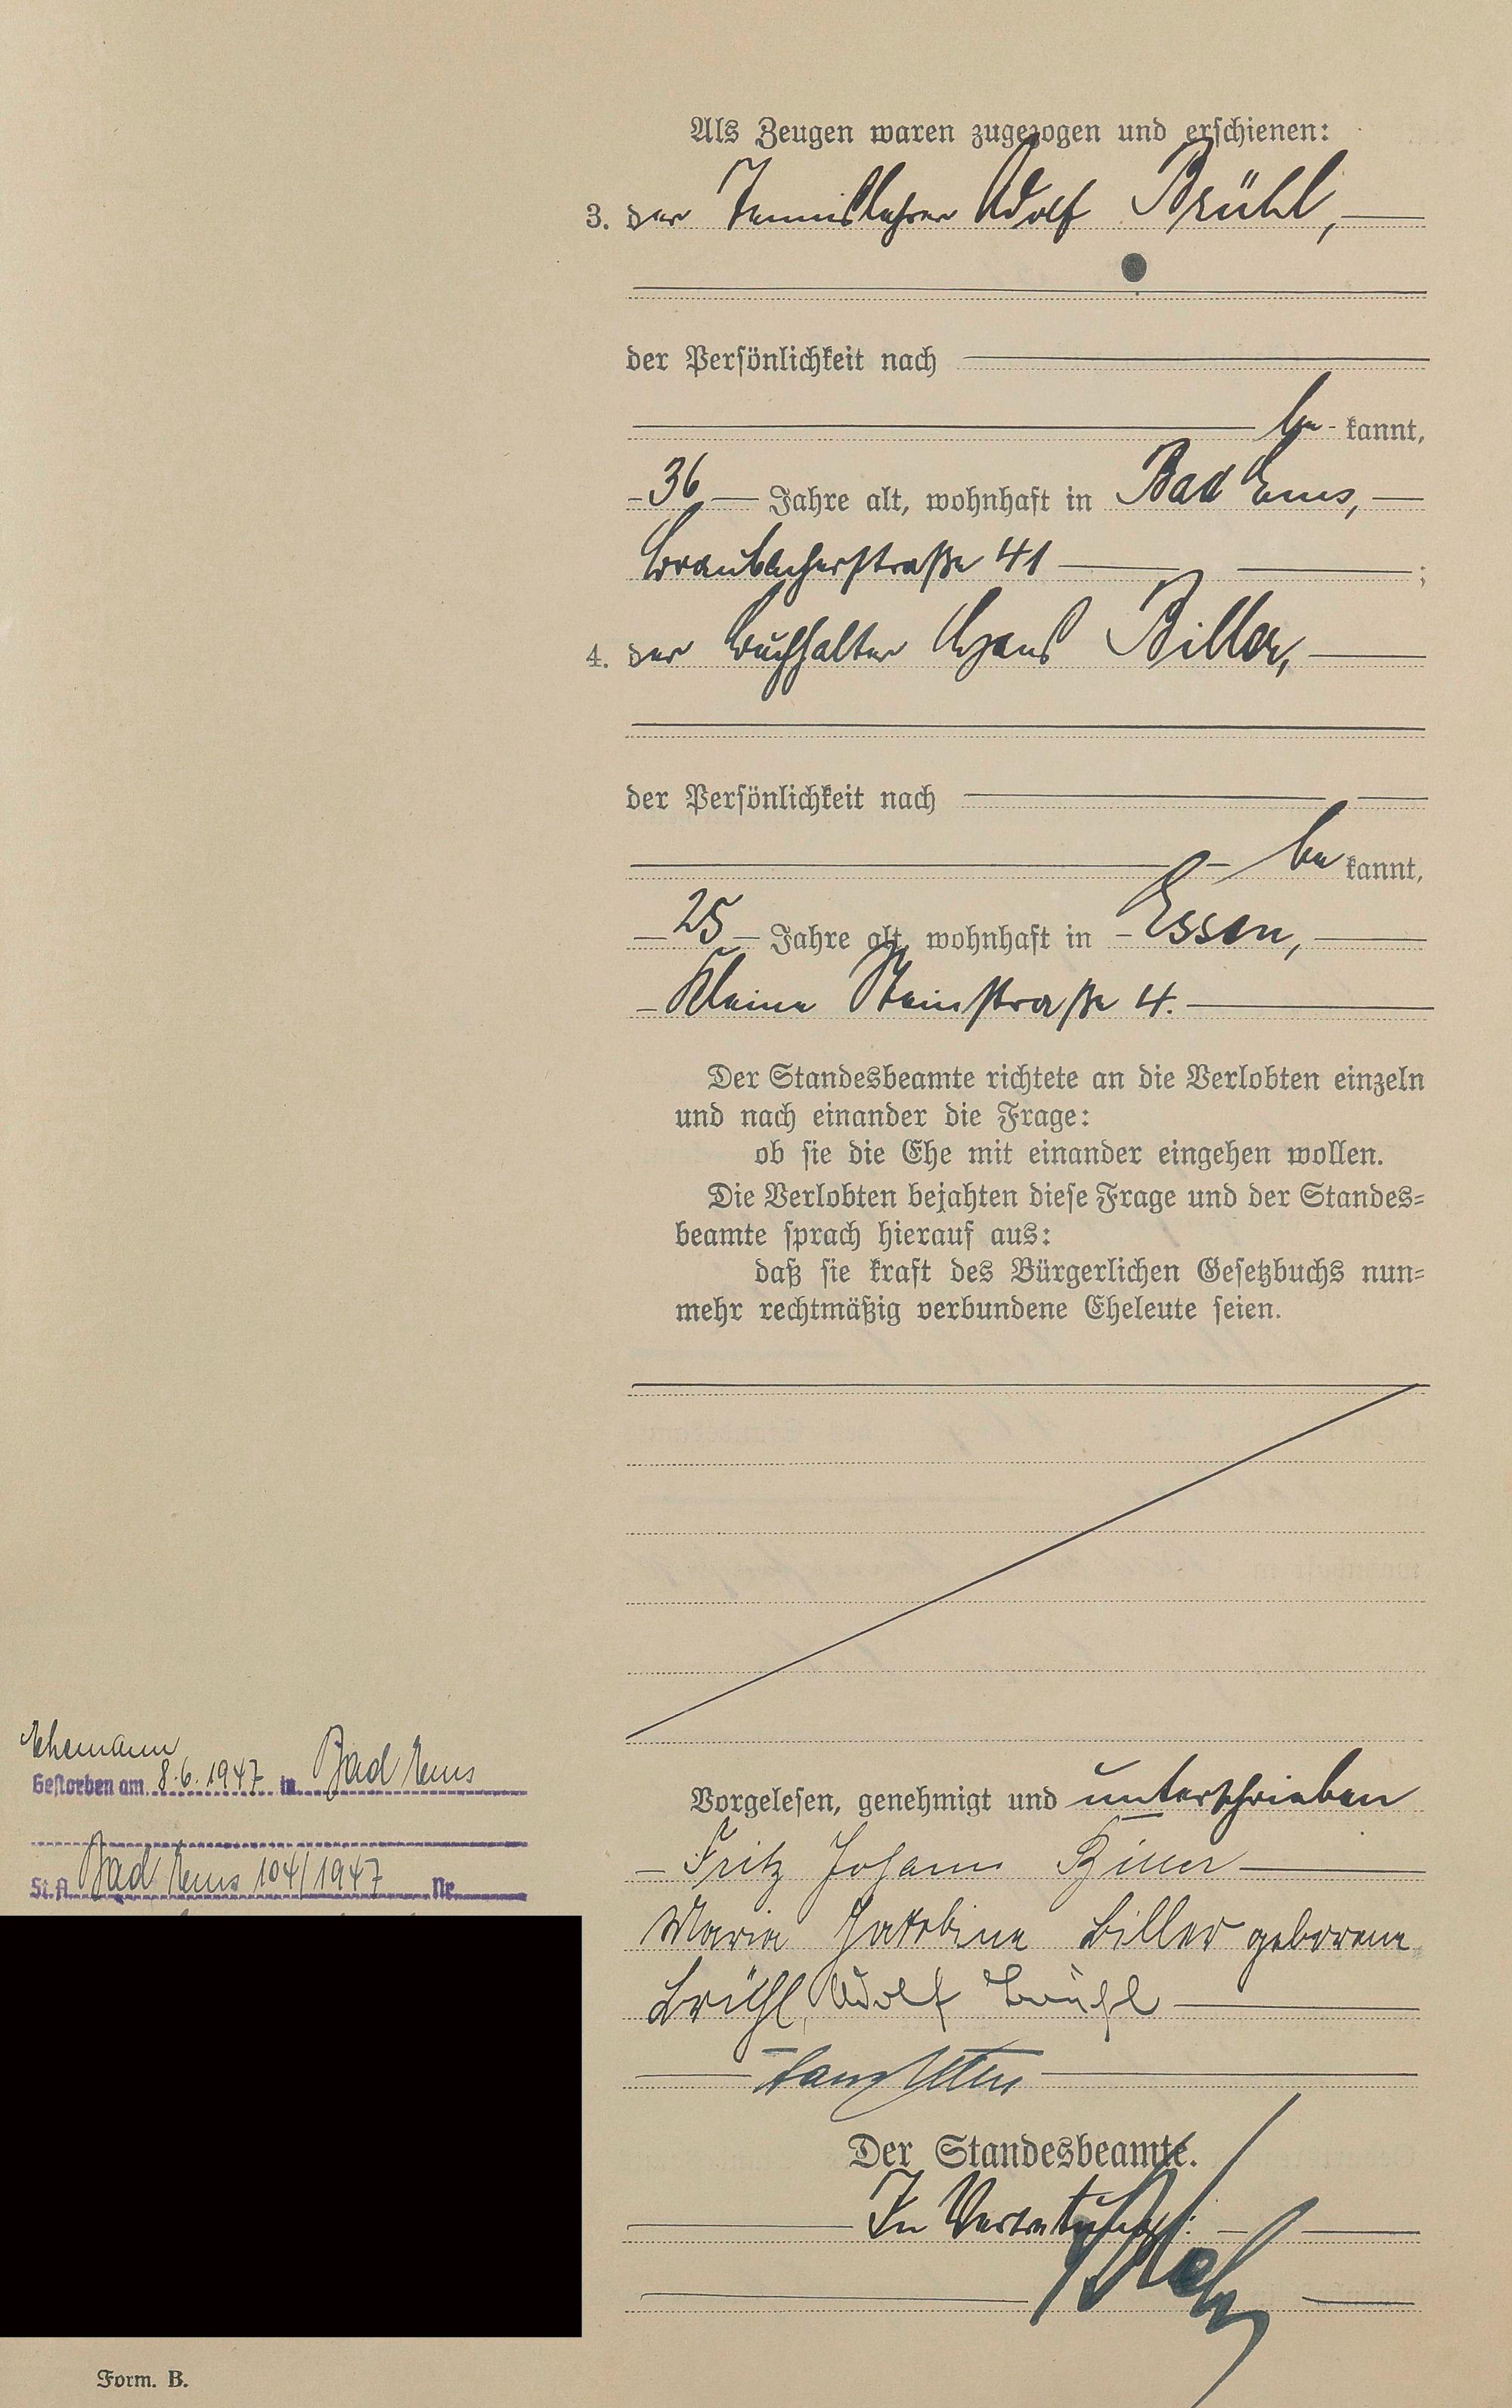 Als Zeugen waren zugezogen und erschienen:
3. der Tennislehrer Adolf Brühl,
der Persönlichkeit nach
be- kannt,
36 Jahre alt, wohnhaft in Bad Ems,
Braubacherstraße 41 ;
4. der Buchhalter Hans Biller,
der Persönlichkeit nach
be kannt,
25 Jahre alt, wohnhaft in Essen,
Kleine Steinstraße 4.
Der Standesbeamte richtete an die Verlobten einzeln
und nach einander die Frage:
ob sie die Ehe mit einander eingehen wollen.
Die Verlobten bejahten diese Frage und der Standes-
beamte sprach hierauf aus:
daß sie kraft des Bürgerlichen Gesetzbuchs nun-
mehr rechtmäßig verbundene Eheleute seien.
Vorgelesen, genehmigt und unterschrieben
Fritz Johann Biller
Maria Jakobine Biller geborene
Brühl, Adolf Brühl
Hans Biller
Der Standesbeamte.
In Vertretung:
Ehemann
Gestorben am 8.6.1947 in Bad Ems
St.A. Bad Ems 104/1947 Nr.
Form. B.